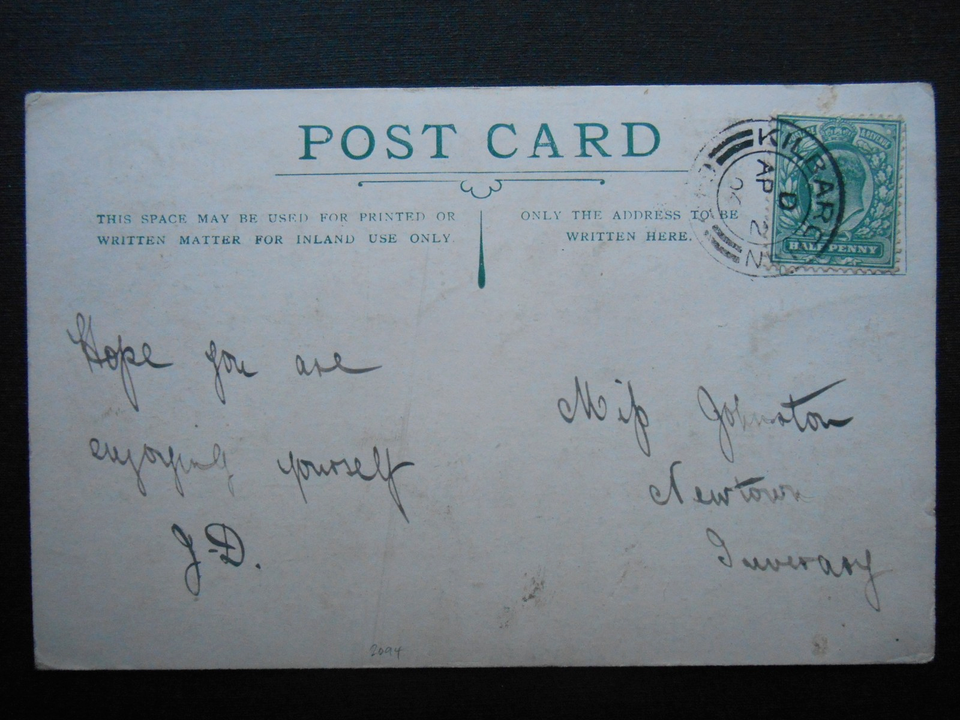 POST CARD
THIS SPACE MAY BE USED FOR PRINTED OR
WRITTEN MATTER FOR INLAND USE ONLY.
ONLY THE ADDRESS TO BE
WRITTEN HERE.
HALFPENNY
AP 2
D
Hope you are
enjoying yourself
J.D.
Miss Johnston
Newtown
Inveraray
2094